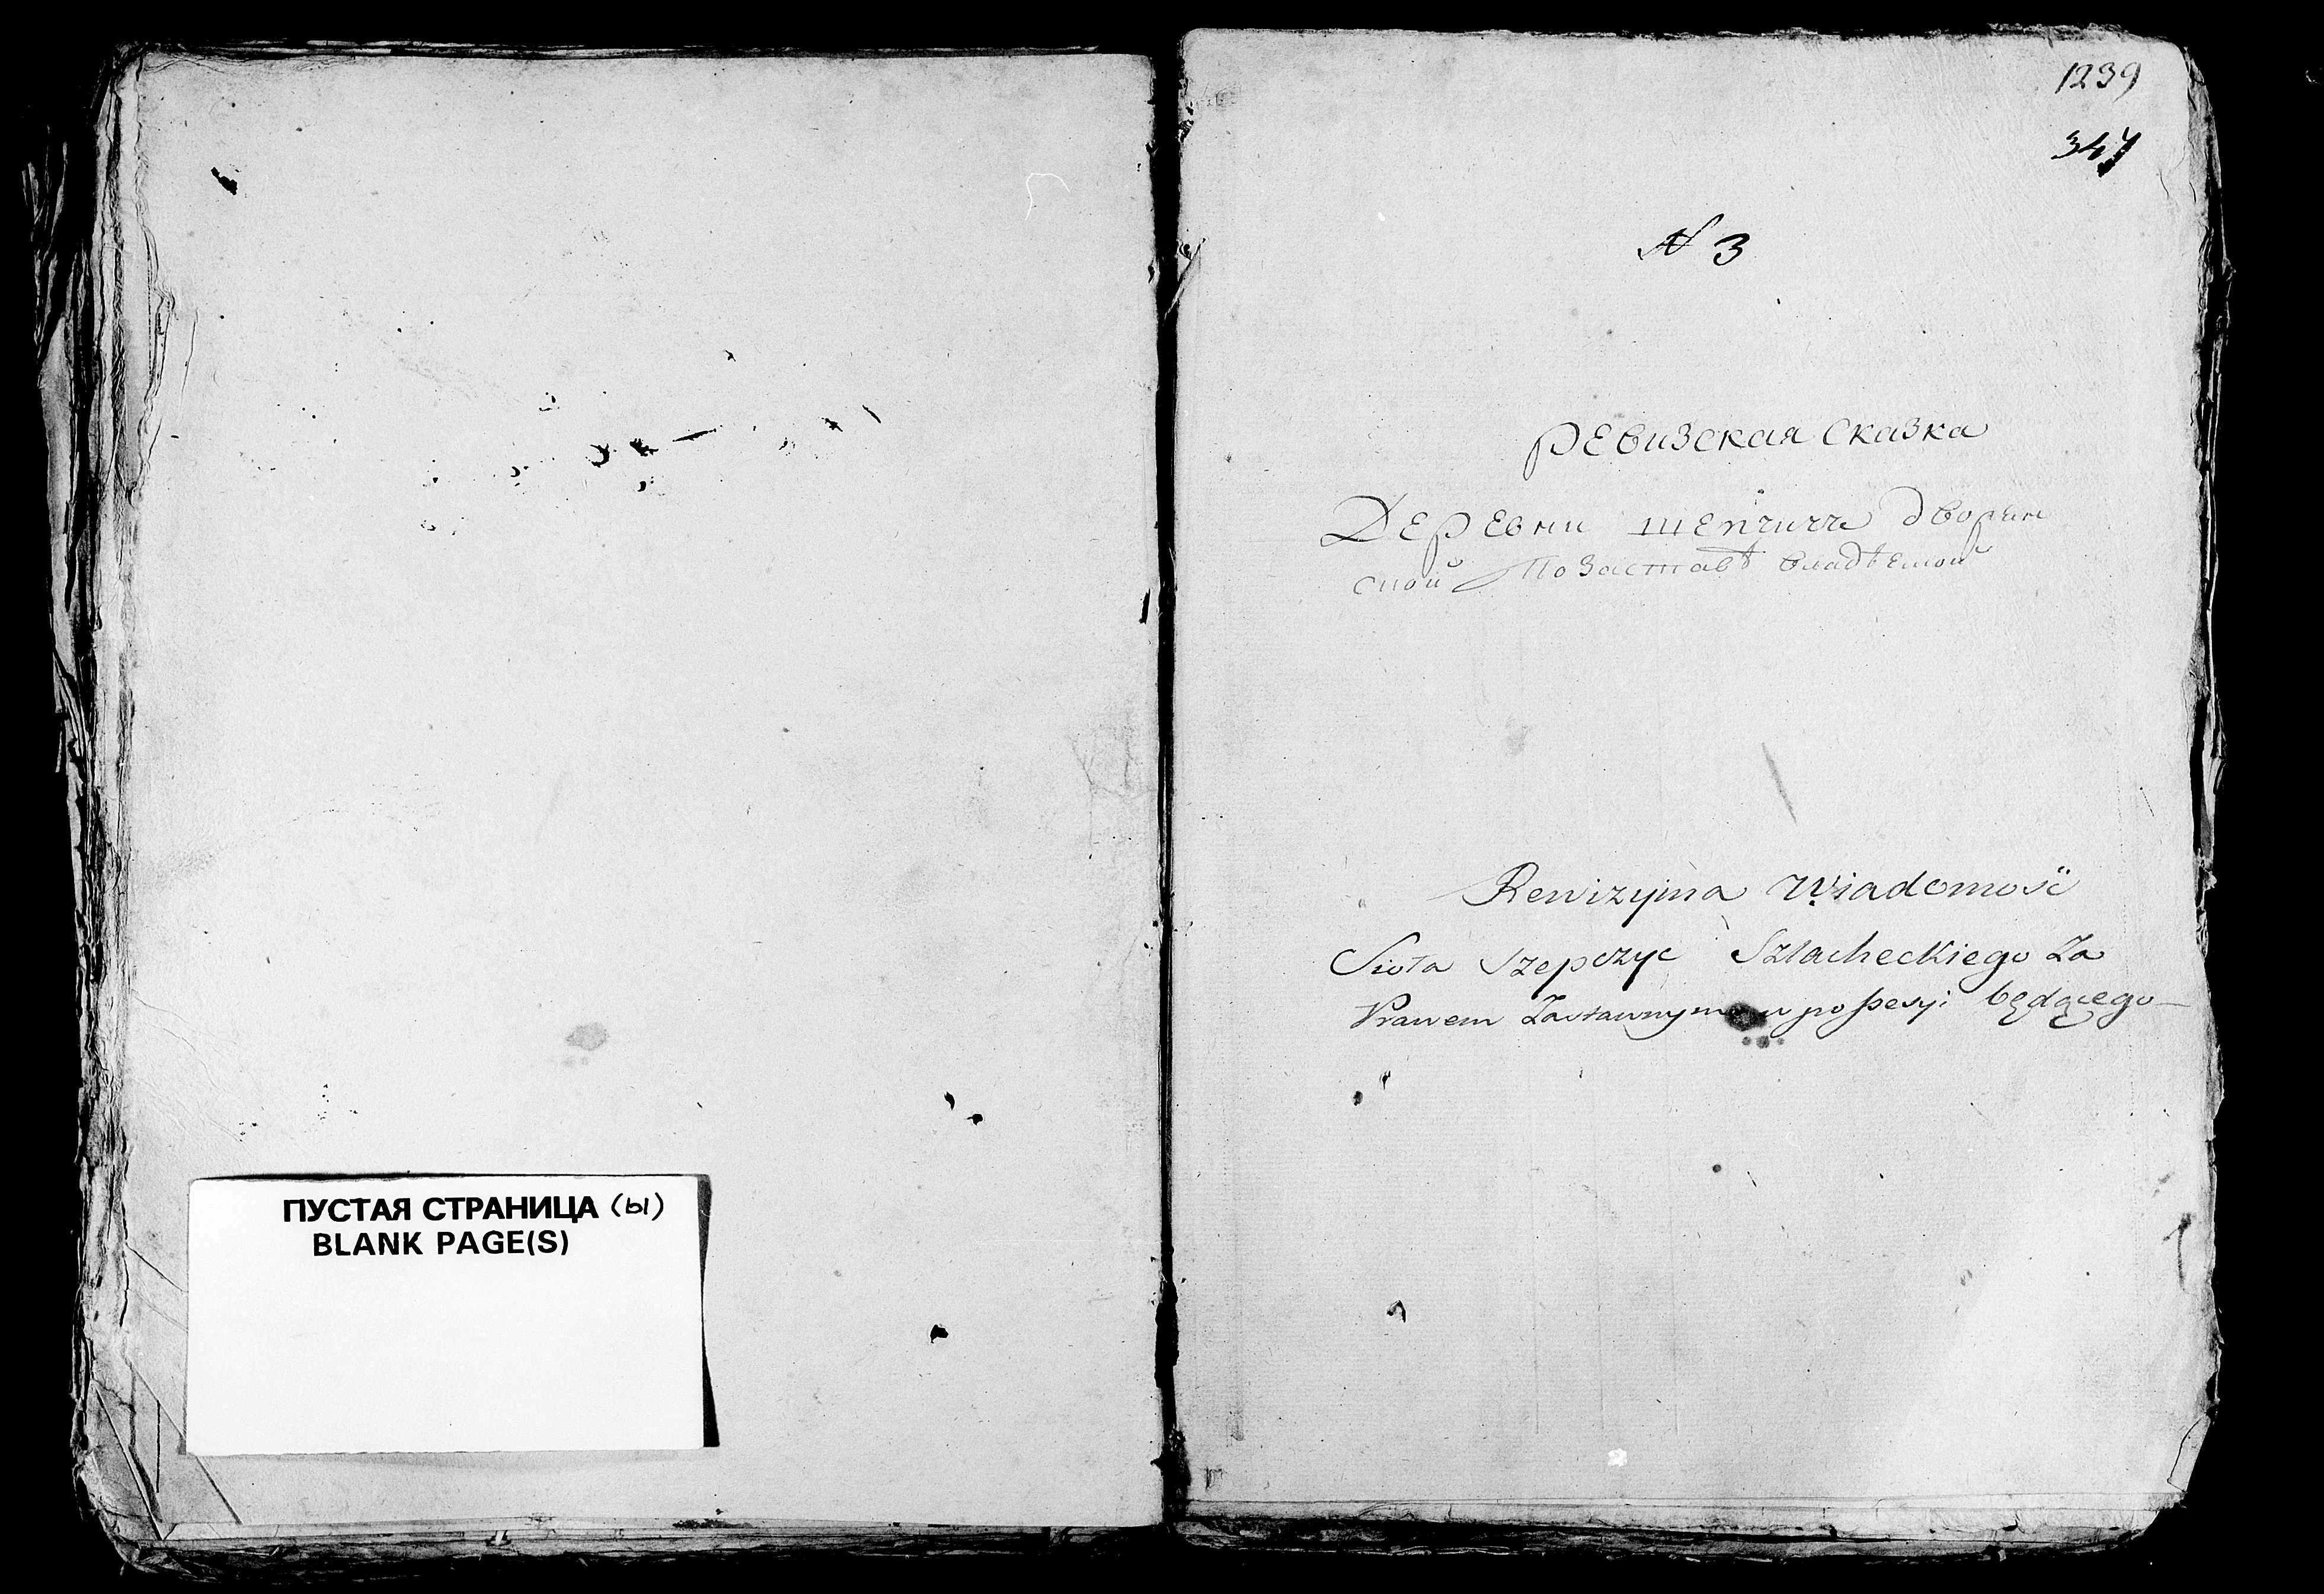 ПУСТАЯ СТРАНИЦА (ы)
BLANK PAGE(S)
1239
347
N 3
Ревизская сказка
Деревни шепчичъ дворян
ской По заставѣ владѣемой
Rewizyjna Wiadomość
Sioła Szepczyc Szlacheckiego Za
Prawem Zastawnym w possesyi będącego